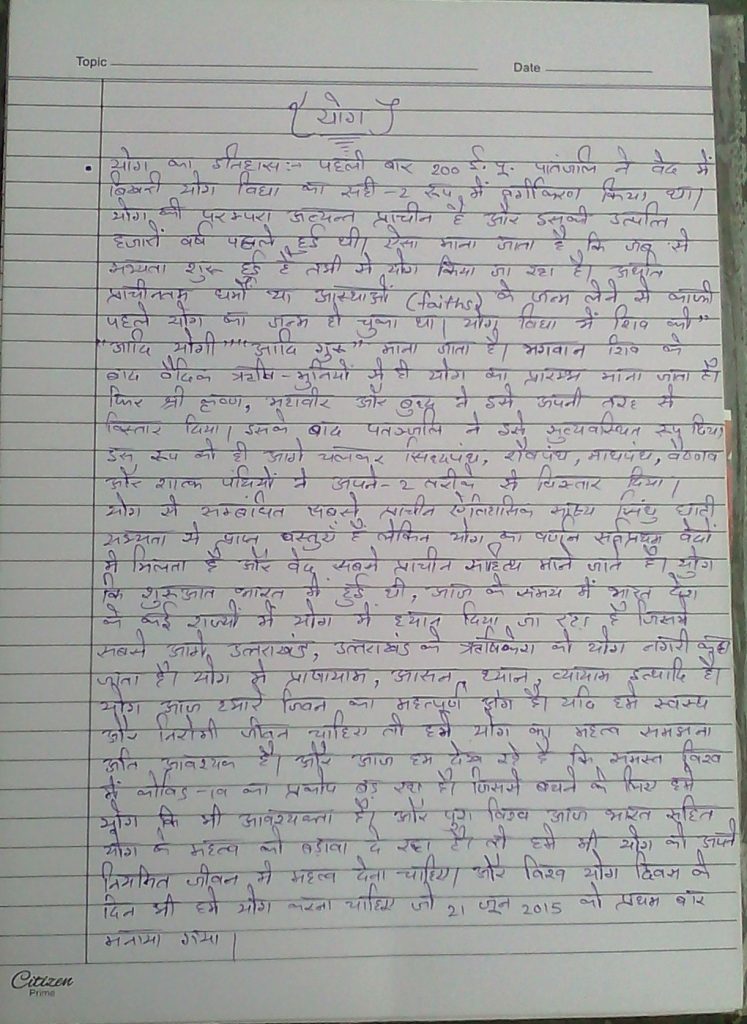 Topic
Date
योग
योग का इतिहास :- पहली बार 200 ई. पू. पातंजलि ने वेद में
बिखरी योग विद्या का सही-2 रूप में वर्गीकरण किया था।
योग की परम्परा अत्यन्त प्राचीन है और इसकी उत्पत्ति
हजारों वर्ष पहले हुई थी। ऐसा माना जाता है कि जब से
सभ्यता शुरू हुई है तभी से योग किया जा रहा है। अर्थात
प्राचीनतम धर्मों या आस्थाओं (faiths) के जन्म लेने से काफी
पहले योग का जन्म हो चुका था। योग विद्या में शिव को "
"आदि योगी" "आदि गुरू" माना जाता है। भगवान शिव के
बाद वैदिक ऋषि-मुनियों से ही योग का प्रारम्भ माना जाता है।
फिर श्री कृष्ण, महावीर और बुध्द ने इसे अपनी तरह से
विस्तार दिया। इसके बाद पतञ्जलि ने इसे सुव्यवस्थित रूप दिया,
इस रूप को ही आगे चलकर सिध्दपंथ, शैवपंथ, नाथपंथ, वैष्णव
और शाक्त पंथियों ने अपने-2 तरीके से विस्तार दिया।
योग से सम्बंधित सबसे प्राचीन ऐतिहासिक साक्ष्य सिंधु घाटी
सभ्यता से प्राप्त वस्तुएं हैं लेकिन योग का वर्णन सर्वप्रथम वेदों
में मिलता है और वेद सबसे प्राचीन साहित्य माने जाते है। योग
कि शुरुआत भारत में हुई थी, आज के समय में भारत देश
के कई राज्यों में योग में ध्यान दिया जा रहा है जिसमे
सबसे आगे उत्तराखंड, उत्तराखंड के ऋषिकेश को योग नगरी कहा
जाता है। योग में प्राणायाम, आसन, ध्यान, व्यायाम इत्यादि है।
योग आज हमारे जिवन का महत्पूर्ण अंग है। यदि हमे स्वस्थ
और निरोगी जीवन चाहिए तो हमें योग का महत्व समझना
अति आवश्यक है। और आज हम देख रहे है कि समस्त विश्व
में कोविड-19 का प्रकोप बड़ रहा है। जिससे बचने के लिए हमे
योग कि भी आवश्यक्ता है। और पूरा विश्व आज भारत सहित
योग के महत्व को बड़ावा दे रहा है। तो हमे भी योग को अपने
नियमित जीवन मे महत्व देना चाहिए। और विश्व योग दिवस के
दिन भी हमे योग करना चाहिए जो 21 जून 2015 को प्रथम बार
मनाया गया।
Citizen
Prime